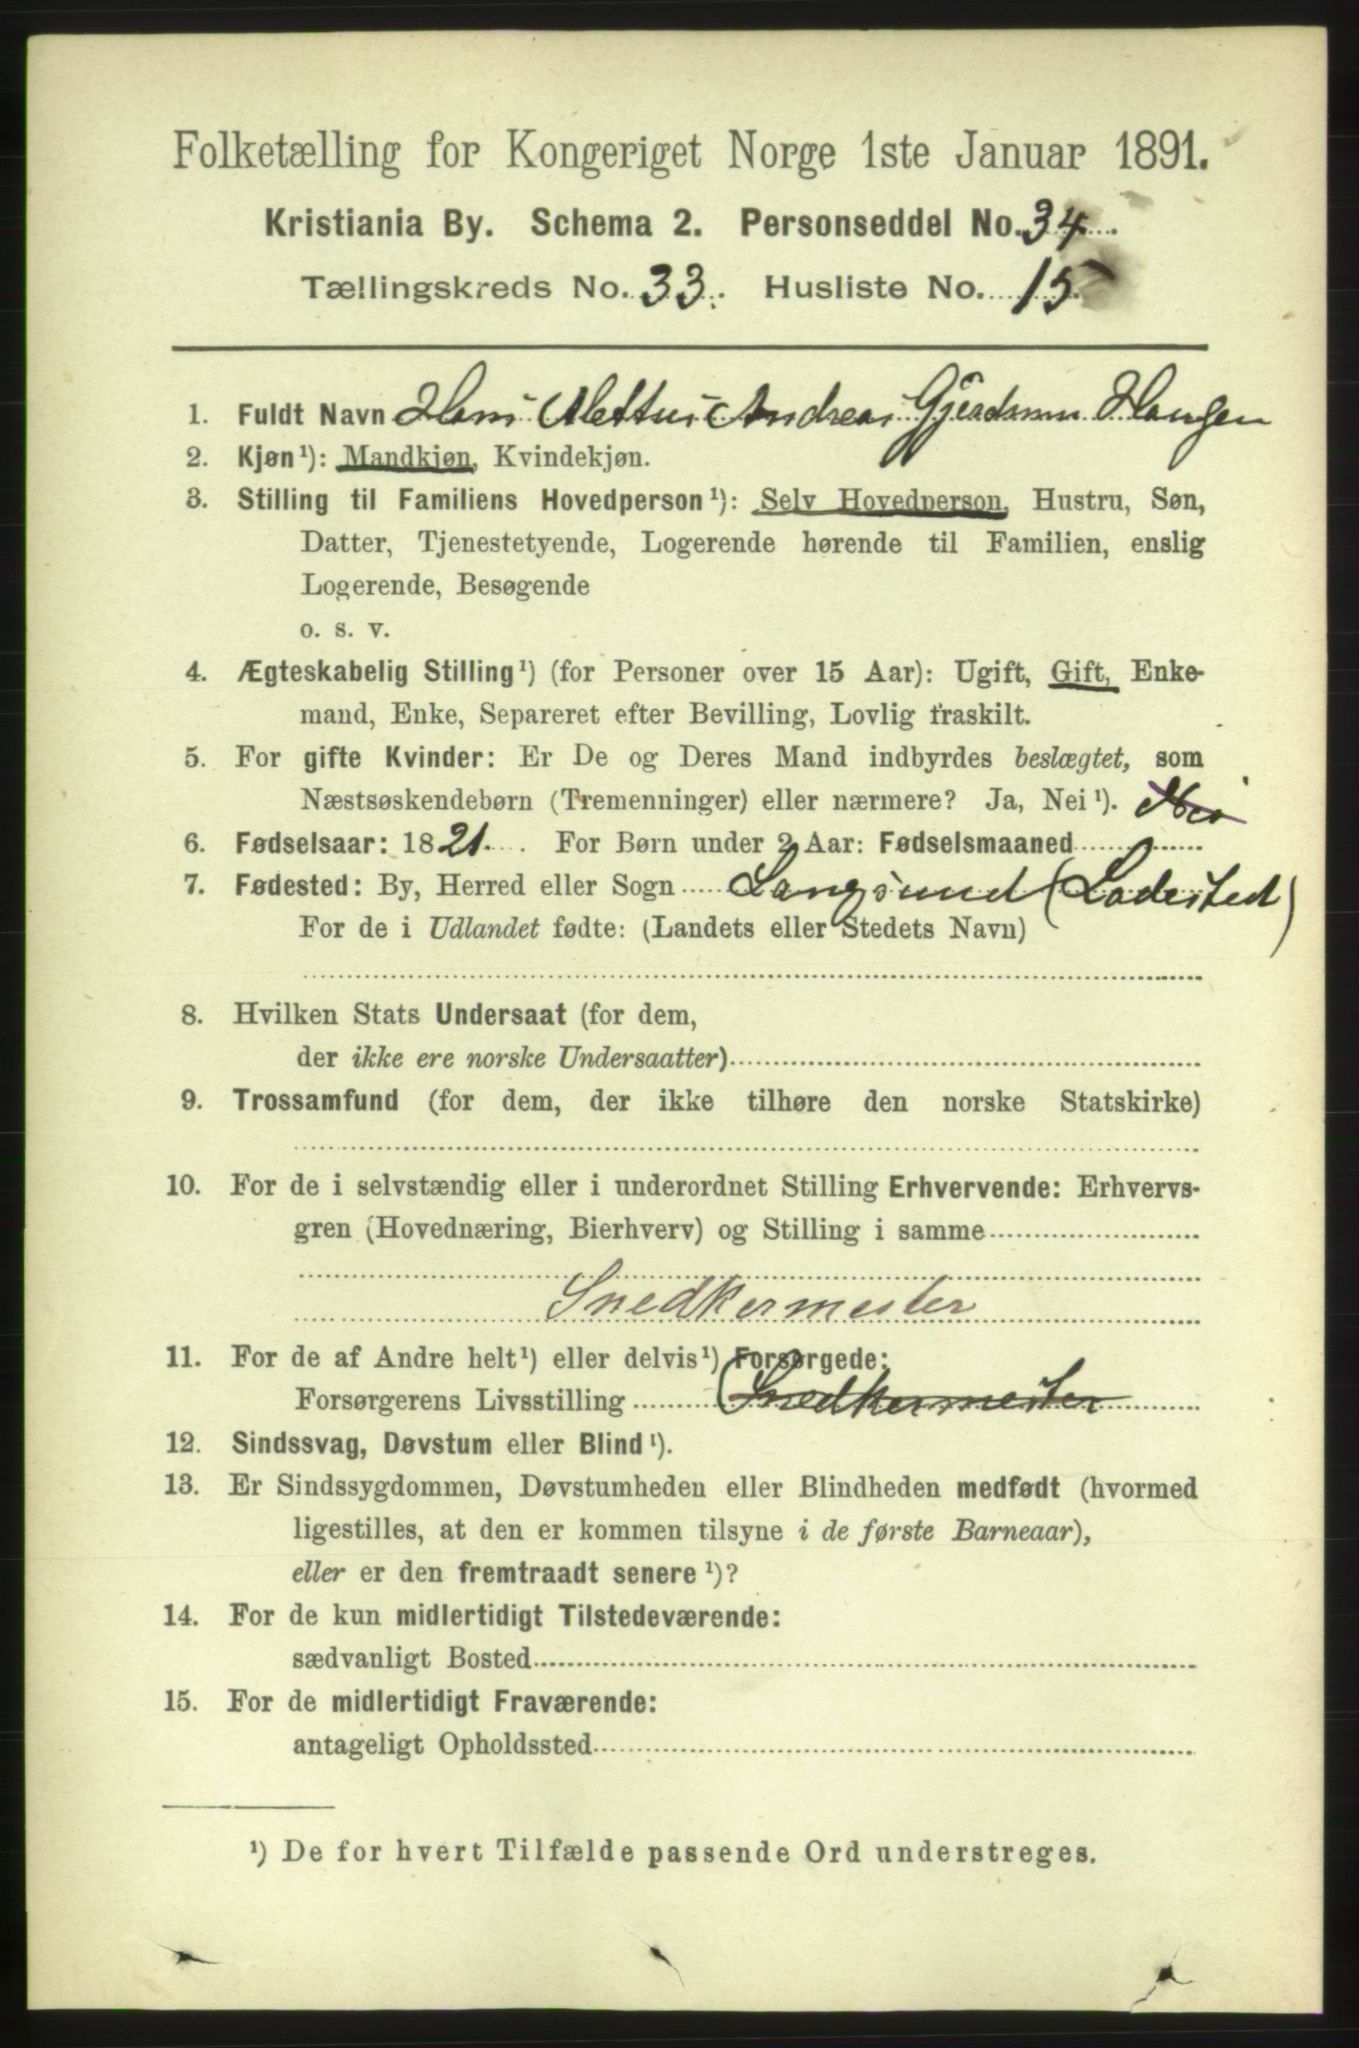 Folketælling for Kongeriget Norge 1ste Januar 1891.
Kristiania By. Schema 2. Personseddel No. 34.
Tællingskreds No. 33. Husliste No. 15.
1. Fuldt Navn Hans Mettus Andreas Haugen
2. Kjøn¹): Mandkjøn, Kvindekjøn.
3. Stilling til Familiens Hovedperson¹): Selv Hovedperson, Hustru, Søn,
Datter, Tjenestetyende, Logerende hørende til Familien, enslig
Logerende, Besøgende
o. s. v.
4. Ægteskabelig Stilling¹) (for Personer over 15 Aar): Ugift, Gift, Enke-
mand, Enke, Separeret efter Bevilling, Lovlig fraskilt.
5. For gifte Kvinder: Er De og Deres Mand indbyrdes beslægtet, som
Næstsøskendebørn (Tremenninger) eller nærmere? Ja, Nei¹). Nei
6. Fødselsaar: 1821. For Børn under 2 Aar: Fødselsmaaned
7. Fødested: By, Herred eller Sogn Langsund (Ladested)
For de i Udlandet fødte: (Landets eller Stedets Navn)
8. Hvilken Stats Undersaat (for dem,
der ikke ere norske Undersaatter)
9. Trossamfund (for dem, der ikke tilhøre den norske Statskirke)
10. For de i selvstændig eller i underordnet Stilling Erhvervende: Erhvervs-
gren (Hovednæring, Bierhverv) og Stilling i samme
Snedkermester
11. For de af Andre helt¹) eller delvis¹) Forsørgede:
Forsørgerens Livsstilling (Snedkermester
12. Sindssvag, Døvstum eller Blind¹).
13. Er Sindssygdommen, Døvstumheden eller Blindheden medfødt (hvormed
ligestilles, at den er kommen tilsyne i de første Barneaar),
eller er den fremtraadt senere¹)?
14. For de kun midlertidigt Tilstedeværende:
sædvanligt Bosted
15. For de midlertidigt Fraværende:
antageligt Opholdssted
¹) De for hvert Tilfælde passende Ord understreges.